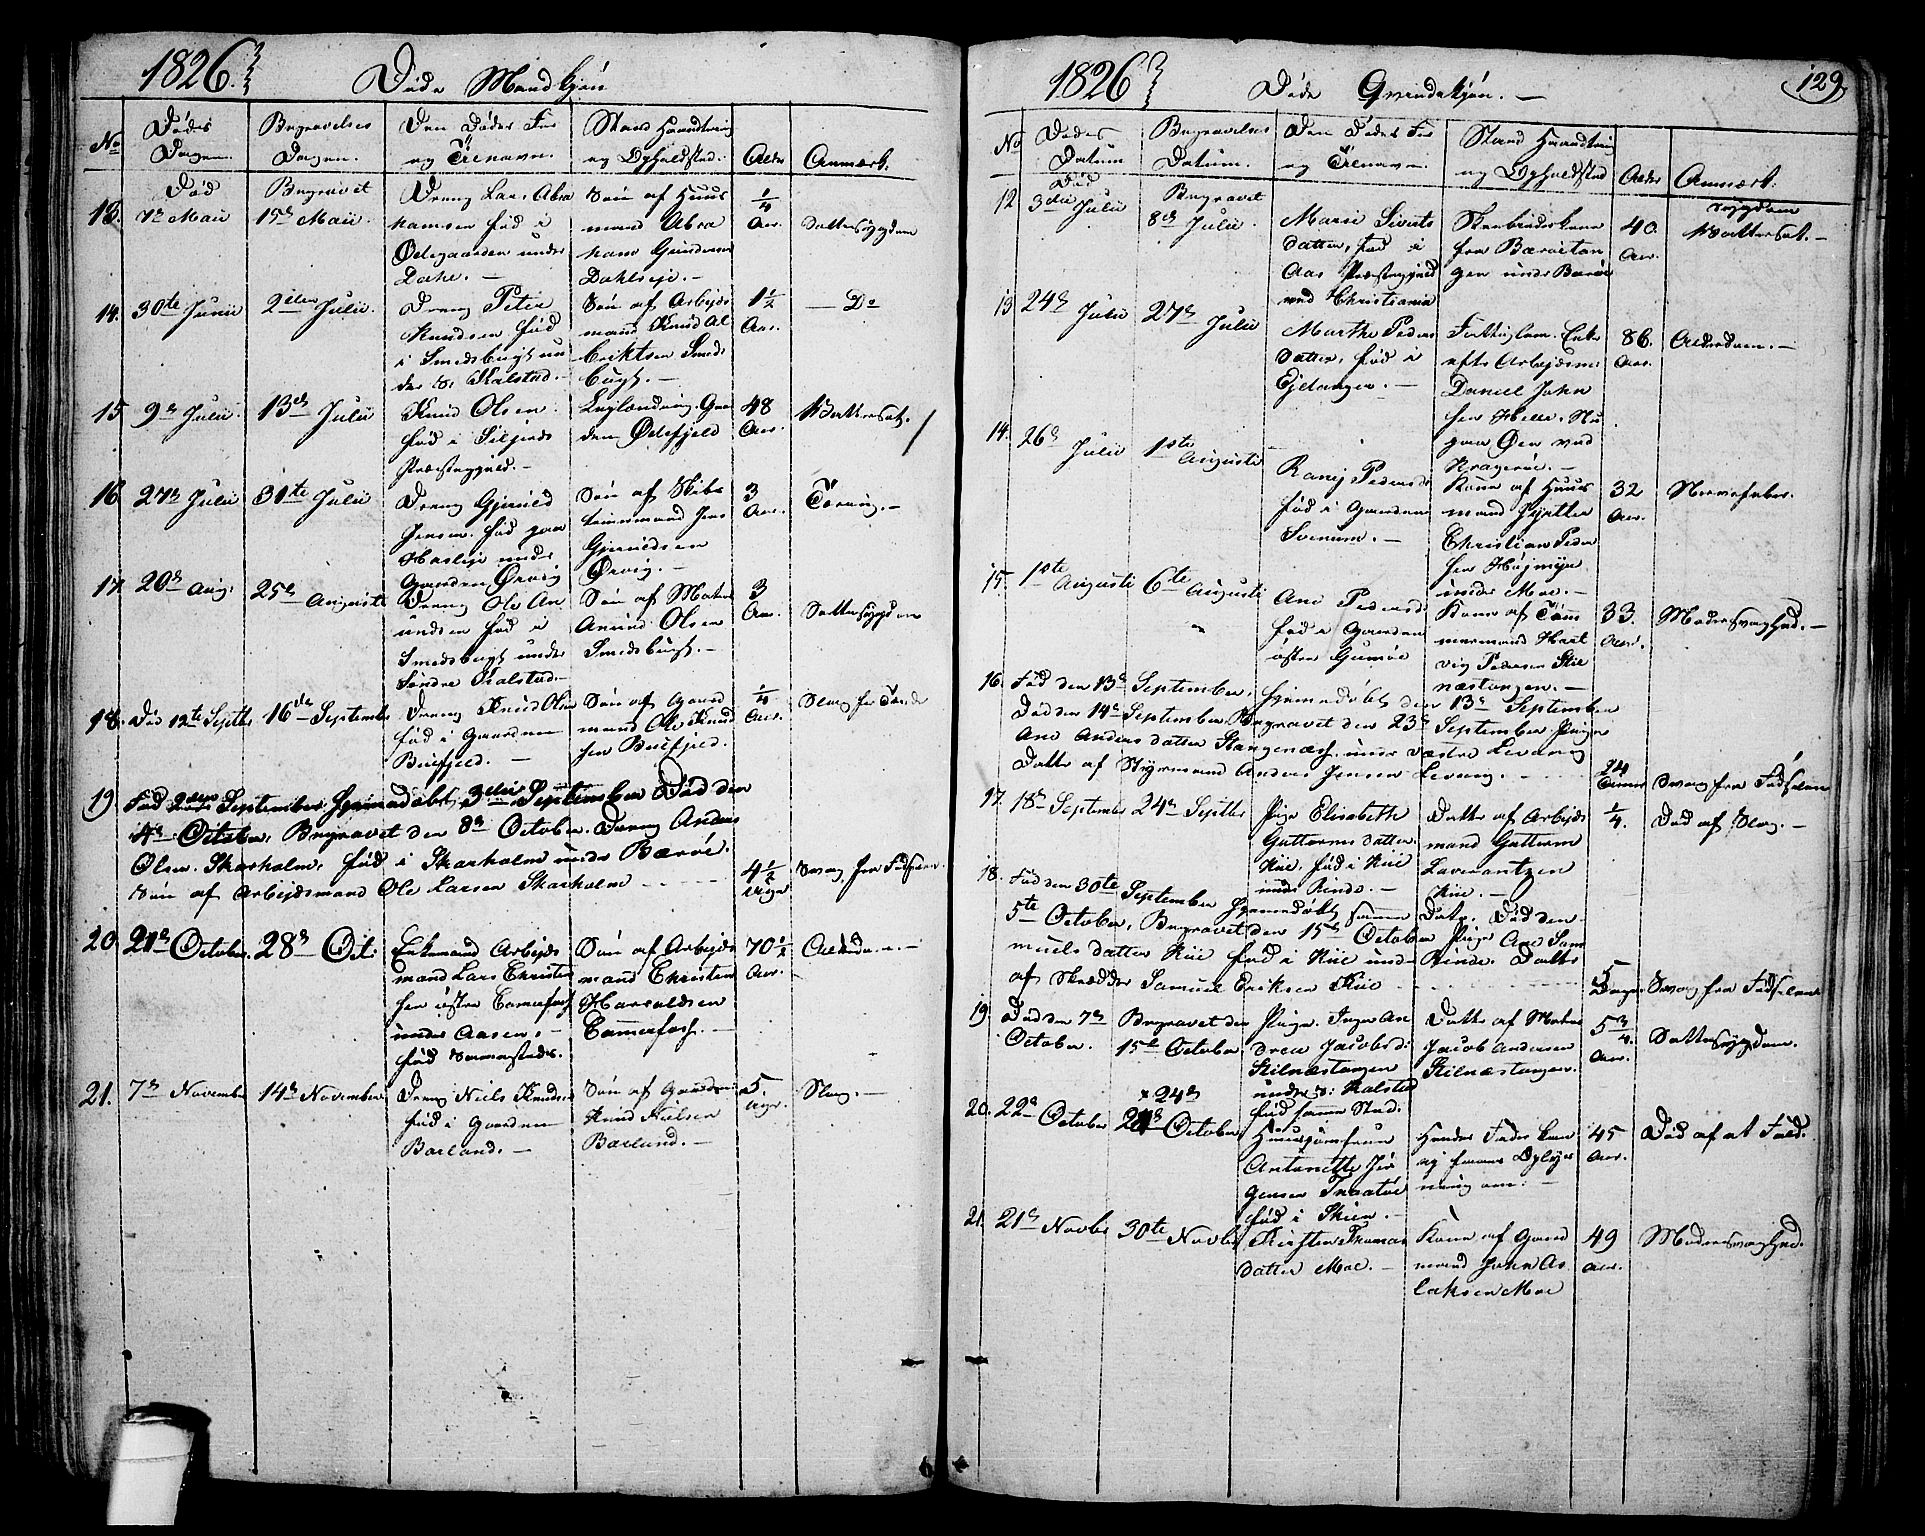 1826.
Døde Mandkjøn
No
Dødes Dagen.
Begravelses Dagen.
Den Dødes For og Tilnavn.
Stand Haandtering og Opholdsted.
Alder
Anmærk.
Død
Begravet
13.
7de Maii
15de Maii.
Dreng Lars Abra
hamsen fød i
Ødegaarden under
Dahl. —
Søn af Huus
mand Abra
ham Gundersen
Dahlseje. —
1/4
Aar.
Sottesygdom
14.
30te Junii
2den Julii.
Dreng Peter
Knudsen fød
i Smedsbugt un
der S: Kalstad. —
Søn af Arbejds
mand Knud Al
briktsen Smeds
bugt. —
1 1/2
Aar.
— Do
15
9de Julii
13de Julii
Knud Olsen.
fød i Siljords
Præstegjeld. —
den Ødefjeld
48
Aar.
Vattersot.
16
27de Julii
31te Julii
Dreng Gjeruld
Jensen. fød paa
Hasleje under
Gaarden Ørvig
Søn af Skibs
tømmermand Jens
Gjeruldsen
Ørvig. —
3
Aar.
Tæring. —
17.
20de Aug.
25de Augusti
Dreng Ole An
undsen fød i
Smedsbugt under
Søndre Kalstad. —
Søn af Matros
Anund Olsen
Smedsbugt. —
3
Aar.
Sottesygdom
18.
Død 12te Septbr
16de September
Dreng Knud Olsen
fød i Gaarden
Buefjeld. —
Søn af Gaard
mand Ole Knud
sen Buefjeld.
1/4
Aar.
Slag for Tænder
19.
Fød 2den September hjemmedøbt 3die September Død den
4de October, Begravet den 8de October. Dreng Anders
Olsen. Skarholm, fød i Skarholm under Bærøe.
Søn af Arbejdsmand Ole Larsen Skarholm
4 1/2
Uger
Svag fra Fødselen.
20.
21de October.
28de Oct:
Enkemand Arbejds
mand Lars Christen
sen østre Tomerfos
under Aasen. —
fød
Søn af Arbejds
mand Christen
Haraldsen
Tomerfos. —
70 1/2
Aar.
Alderdom. —
21.
7de November
14de November
Dreng Niels Knudsen
fød i Gaarden
Barland. —
Søn af Gaardm:
Knud Nielsen
Barland. —
5
Uger.
Slag. —
1826
Døde Qvindekjøn. —
129
No
Dødes Datum
Begravelses Datum.
Den Dødes For og Tilnavn.
Stand Haandtering og Opholdsted
Alder
Anmærk.
Død
Begravet
12
3die Julii
8de Julii
Maren Siverts
datter, fød i
Aas Præstegjeld
ved Christiania
fra Bærøetan
gen under Bærøe
40.
Aar.
Sygdom
Vattersot. —
13
24de Julii
27de Julii
Marthe Peders
datter, fød i
Ejdanger. —
Fattiglem. Enke
efter Arbejdsm:
Daniel John
sen Helle, Nu
paa Øen ved
Kragerøe. —
86.
Aar.
Alderdom. —
14.
26de Julii
1ste Augusti
Ranej Pedersd:
fød i Gaarden
Svenum. —
Kone af Huus
mand Skytter
Christian Peder
sen Højmyr
under Moe. —
32
Aar.
Nervefeber.
15.
1ste Augusti
6te Augusti
Ane Pedersd:
fød i Gaarden
østre Gumøe
Kone af Tøm
mermand Hart
vig Pedersen Kil
næstangen. —
33.
Aar.
Modersvaghed. —
16.
Fød den 13de September, hjemmedøbt den 13de September
Død den 14de September Begravet den 23de September Pige
Ane Andersdatter Stangenæs under Vestre Levang
Datter af Styrmand Anders Jensen Levang.
24
Timer
Svag fra Fødselen
17.
18de September
24de Septbr
Pige Elisabeth
Guttormsdatter
Kiil, fød i Kiil
under Rinde. —
Datter af Arbejds
mand Guttorm
Laverantzen
Kiil. —
1/4.
Død af Slag. —
18.
Fød den 30te September hjemmedøbt samme Dato, Død den
5te October, Begravet den 15de October Pige Ane Sam
muels datter Kiil fød i Kiil under Rinde. Datter
af Skrædder Samuel Eriksen Kiil
5
Dage
Svag fra Fødselen
19.
Død den 7de October.
Begravet den 15de October.
Pige. Inger An
drea Jacobsd:
Kilnæstangen
under S: Kalstad
fød samme Sted.
Datter af Matros
Jacob Andersen
Kilnæstangen.
5 3/4.
Aar.
Sottesygdom.
20.
22de October
x 24de
October
Huusjomfrue
Antonette Jør
gensen Traatøe
fød i Skien. —
Hendes Fader kan
ej faaes Oplys
ning om. —
45
Aar.
Død af et Fald.
21.
21de Novbr
30te Novbr
Kirsten Thomas
datter Moe. —
Kone af Gaard
mand John As
laksen Moe
49
Aar.
Modersvaghed.